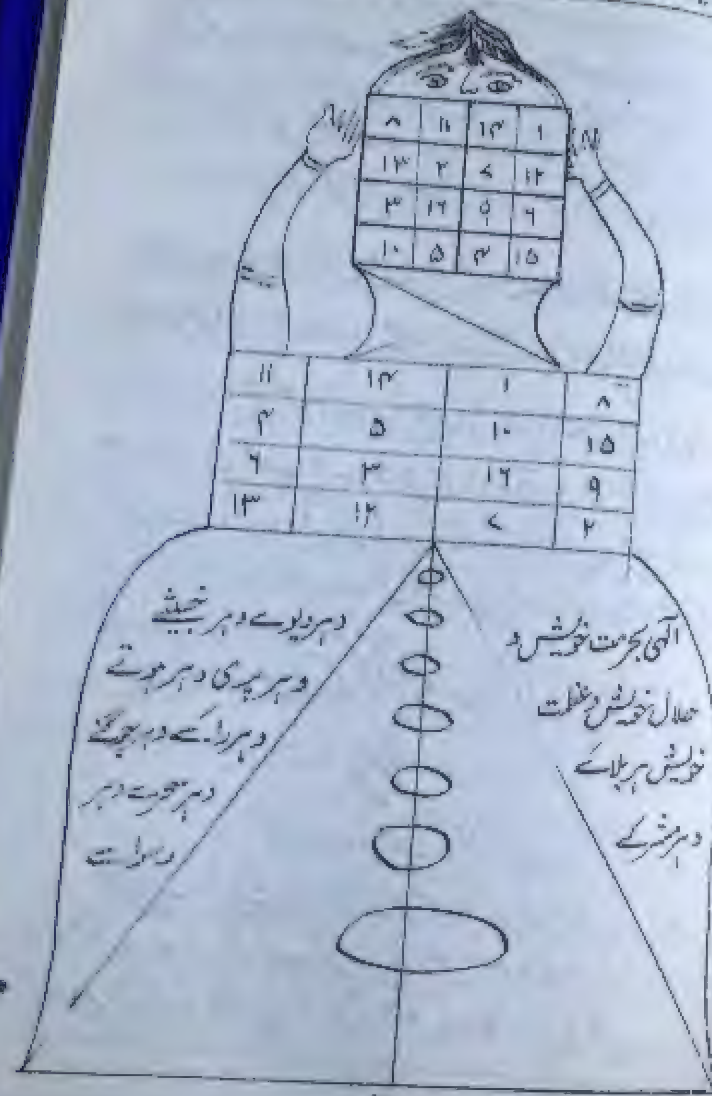 ۸ ۱۱ ۱۴ ۱
۱۳ ۲ ۷ ۱۲
۳ ۱۶ ۹ ۶
۱۰ ۵ ۴ ۱۵
۱۱ ۱۴ ۱ ۸
۴ ۵ ۱۰ ۱۵
۶ ۳ ۱۶ ۹
۱۳ ۱۲ ۷ ۲
الٰہی بحرمت خویش و
جلال خویش و عظمت
خویش ہر بلائے
و ہر مشرکے
و ہر دیوے و ہر خبیثے
و ہر پری و ہر بھوتے
و ہر و ہر
و ہر سحرے و ہر